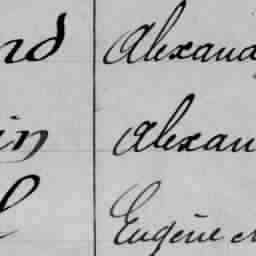 nd Alexand
in Alexan
l Eugène